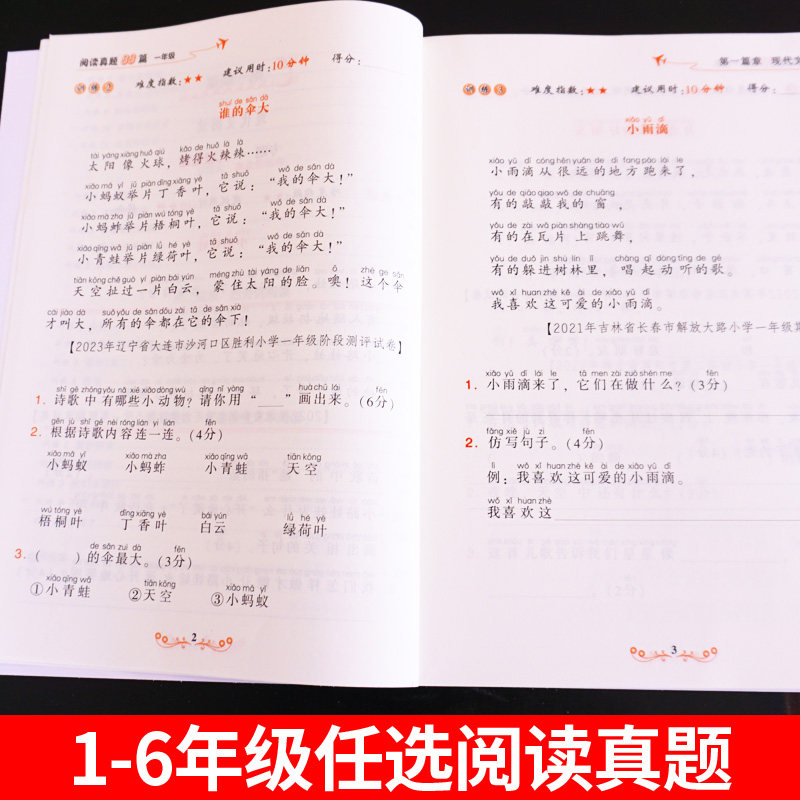 阅读真题80篇 一年级
训练2 难度指数：★★ 建议用时：10分钟 得分：
shuí de sǎn dà
谁的伞大
tài yáng xiàng huǒ qiú kǎo de huǒ là là
太阳像火球，烤得火辣辣……
xiǎo mǎ yǐ jǔ piàn dīng xiāng yè tā shuō wǒ de sǎn dà
小蚂蚁举片丁香叶，它说：“我的伞大！”
xiǎo mà zha jǔ piàn wú tóng yè tā shuō wǒ de sǎn dà
小蚂蚱举片梧桐叶，它说：“我的伞大！”
xiǎo qīng wā jǔ piàn lǜ hé yè tā shuō wǒ de sǎn dà
小青蛙举片绿荷叶，它说：“我的伞大！”
tiān kōng chě guò yí piàn bái yún méng zhù tài yáng de liǎn ō zhè ge sǎn
天空扯过一片白云，蒙住太阳的脸。噢！这个伞
cái jiào dà suǒ yǒu de sǎn dōu zài tā de sǎn xià
才叫大，所有的伞都在它的伞下！
【2023年辽宁省大连市沙河口区胜利小学一年级阶段测评试卷】
shī gē zhōng yǒu nǎ xiē xiǎo dòng wù qǐng nǐ yòng huà chū lái fēn
1. 诗歌中有哪些小动物？请你用“___”画出来。（6分）
gēn jù shī gē nèi róng lián yi lián fēn
2. 根据诗歌内容连一连。（4分）
xiǎo mǎ yǐ xiǎo mà zha xiǎo qīng wā tiān kōng
小蚂蚁 小蚂蚱 小青蛙 天空
wú tóng yè dīng xiāng yè bái yún lǜ hé yè
梧桐叶 丁香叶 白云 绿荷叶
de sǎn zuì dà fēn
3. （ ）的伞最大。（3分）
xiǎo qīng wā tiān kōng xiǎo mǎ yǐ
①小青蛙 ②天空 ③小蚂蚁
2
第一篇章 现代文
训练3 难度指数：★★ 建议用时：10分钟 得分：
xiǎo yǔ dī
小雨滴
xiǎo yǔ dī cóng hěn yuǎn de dì fang pǎo lái le
小雨滴从很远的地方跑来了，
yǒu de qiāo qiao wǒ de chuāng
有的敲敲我的窗，
yǒu de zài wǎ piàn shàng tiào wǔ
有的在瓦片上跳舞，
yǒu de duǒ jìn shù lín lǐ chàng qǐ dòng tīng de gē
有的躲进树林里，唱起动听的歌。
wǒ xǐ huan zhè kě ài de xiǎo yǔ dī
我喜欢这可爱的小雨滴。
【2021年吉林省长春市解放大路小学一年级
xiǎo yǔ dī lái le tā men zài zuò shén me fēn
1. 小雨滴来了，它们在做什么？（3分）
fǎng xiě jù zi fēn
2. 仿写句子。（4分）
lì wǒ xǐ huan zhè kě ài de xiǎo yǔ dī
例：我喜欢这可爱的小雨滴。
wǒ xǐ huan zhè
我喜欢这
3
1-6年级任选阅读真题